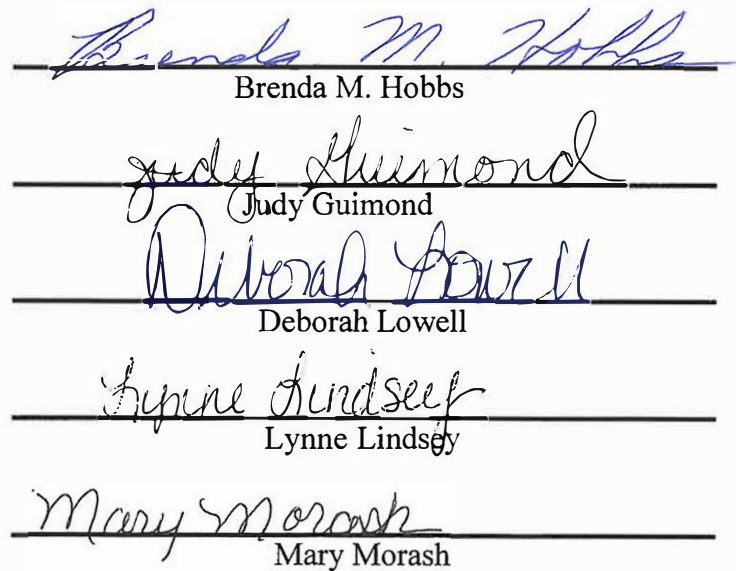 Brenda M. Hobbs
Brenda M. Hobbs
Judy Guimond
Judy Guimond
Deborah Lowell
Deborah Lowell
Lynne Lindsey
Lynne Lindsey
Mary Morash
Mary Morash